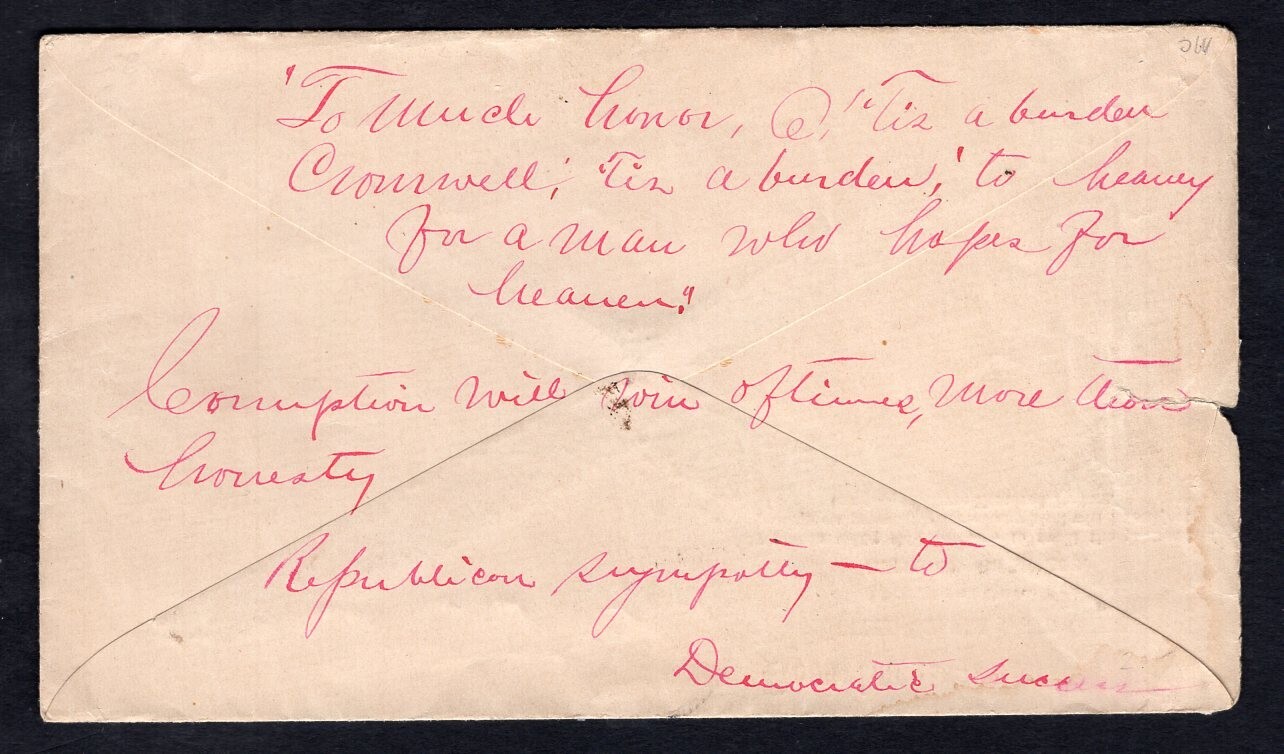 "To much honor, O, 'Tis a burden
Cromwell, 'Tis a burden,' to heavy
for a man who hopes for
heaven."
Corruption will win oftimes, more than
honesty
Republican sympathy — to
Democratic success